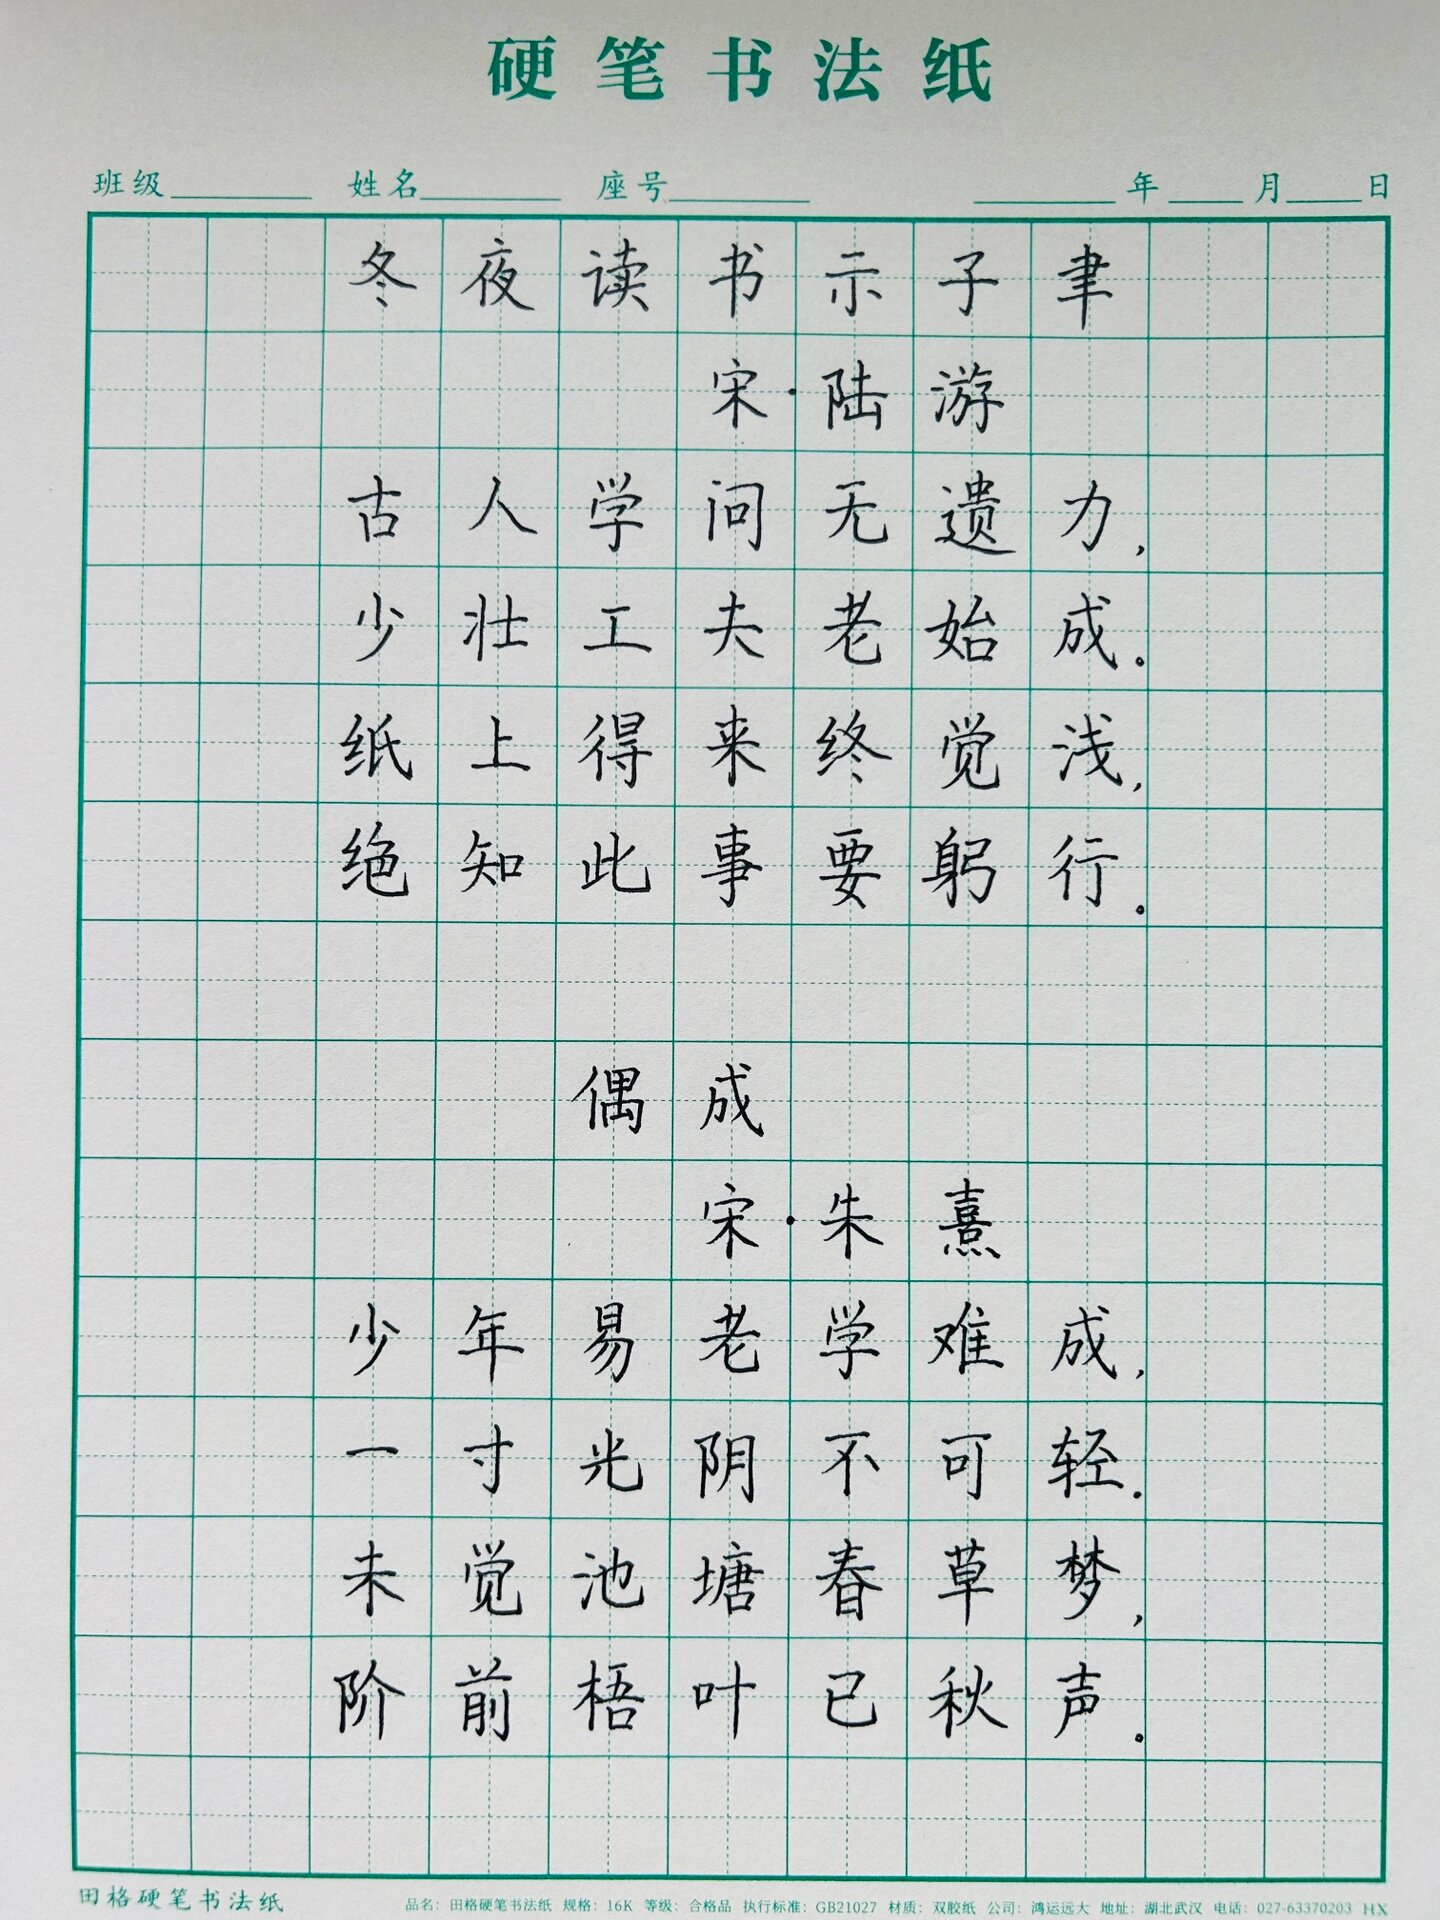 硬笔书法纸
班级 姓名 座号 年 月 日
冬夜读书示子聿
宋·陆游
古人学问无遗力，
少壮工夫老始成。
纸上得来终觉浅，
绝知此事要躬行。
偶成
宋·朱熹
少年易老学难成，
一寸光阴不可轻。
未觉池塘春草梦，
阶前梧叶已秋声。
田格硬笔书法纸 品名：田格硬笔书法纸 规格：16K 等级：合格品 执行标准：GB21027 材质：双胶纸 公司：鸿运远大 地址：湖北武汉 电话：027-63370203 HX